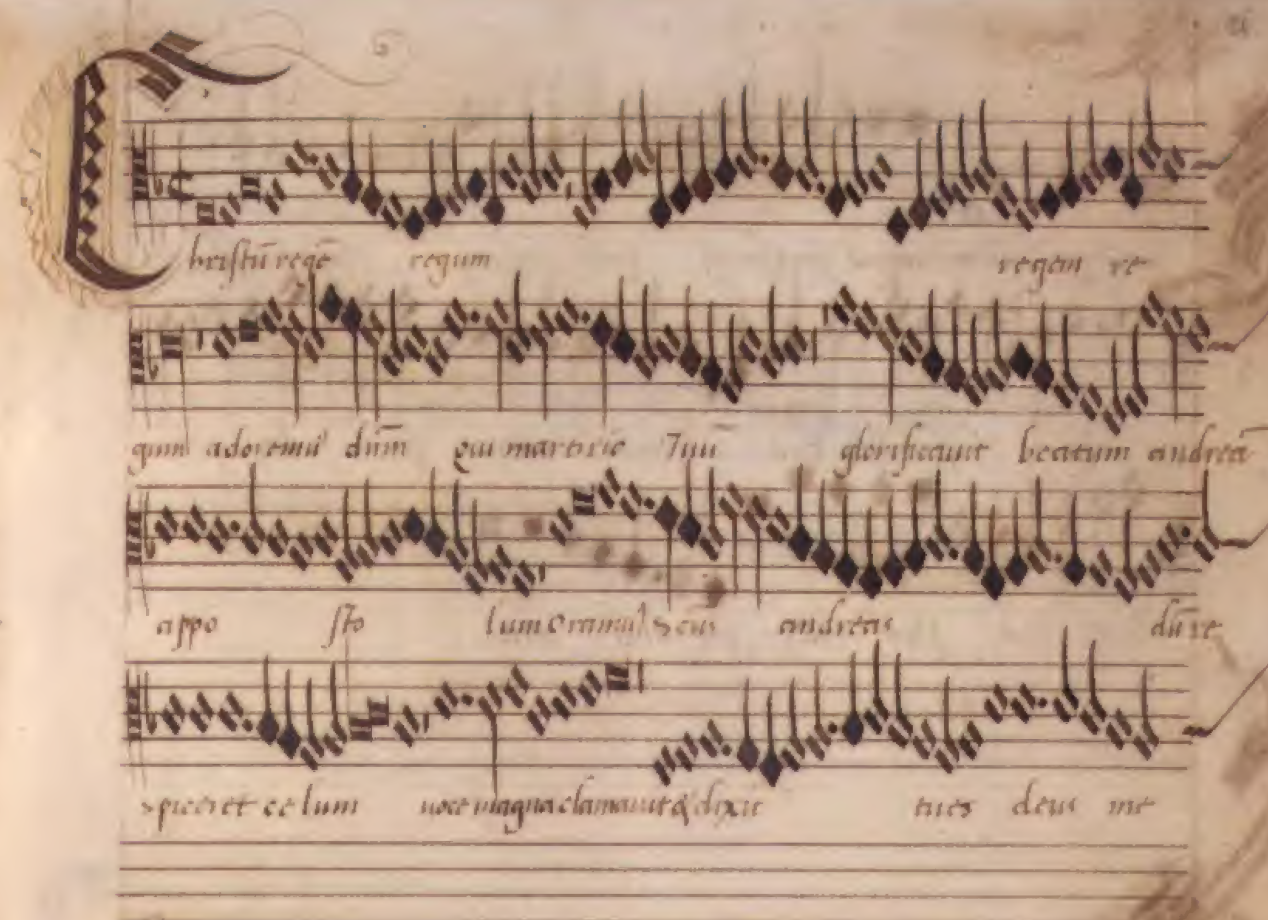 Christū regē regum regem re
gum adoremus dūm qui martirio suū glorificauit beatum andreā
appo sto lum oramus Scūs andreas dū re
spiceret celum uoce magna clamauit & dixit tu es deus me